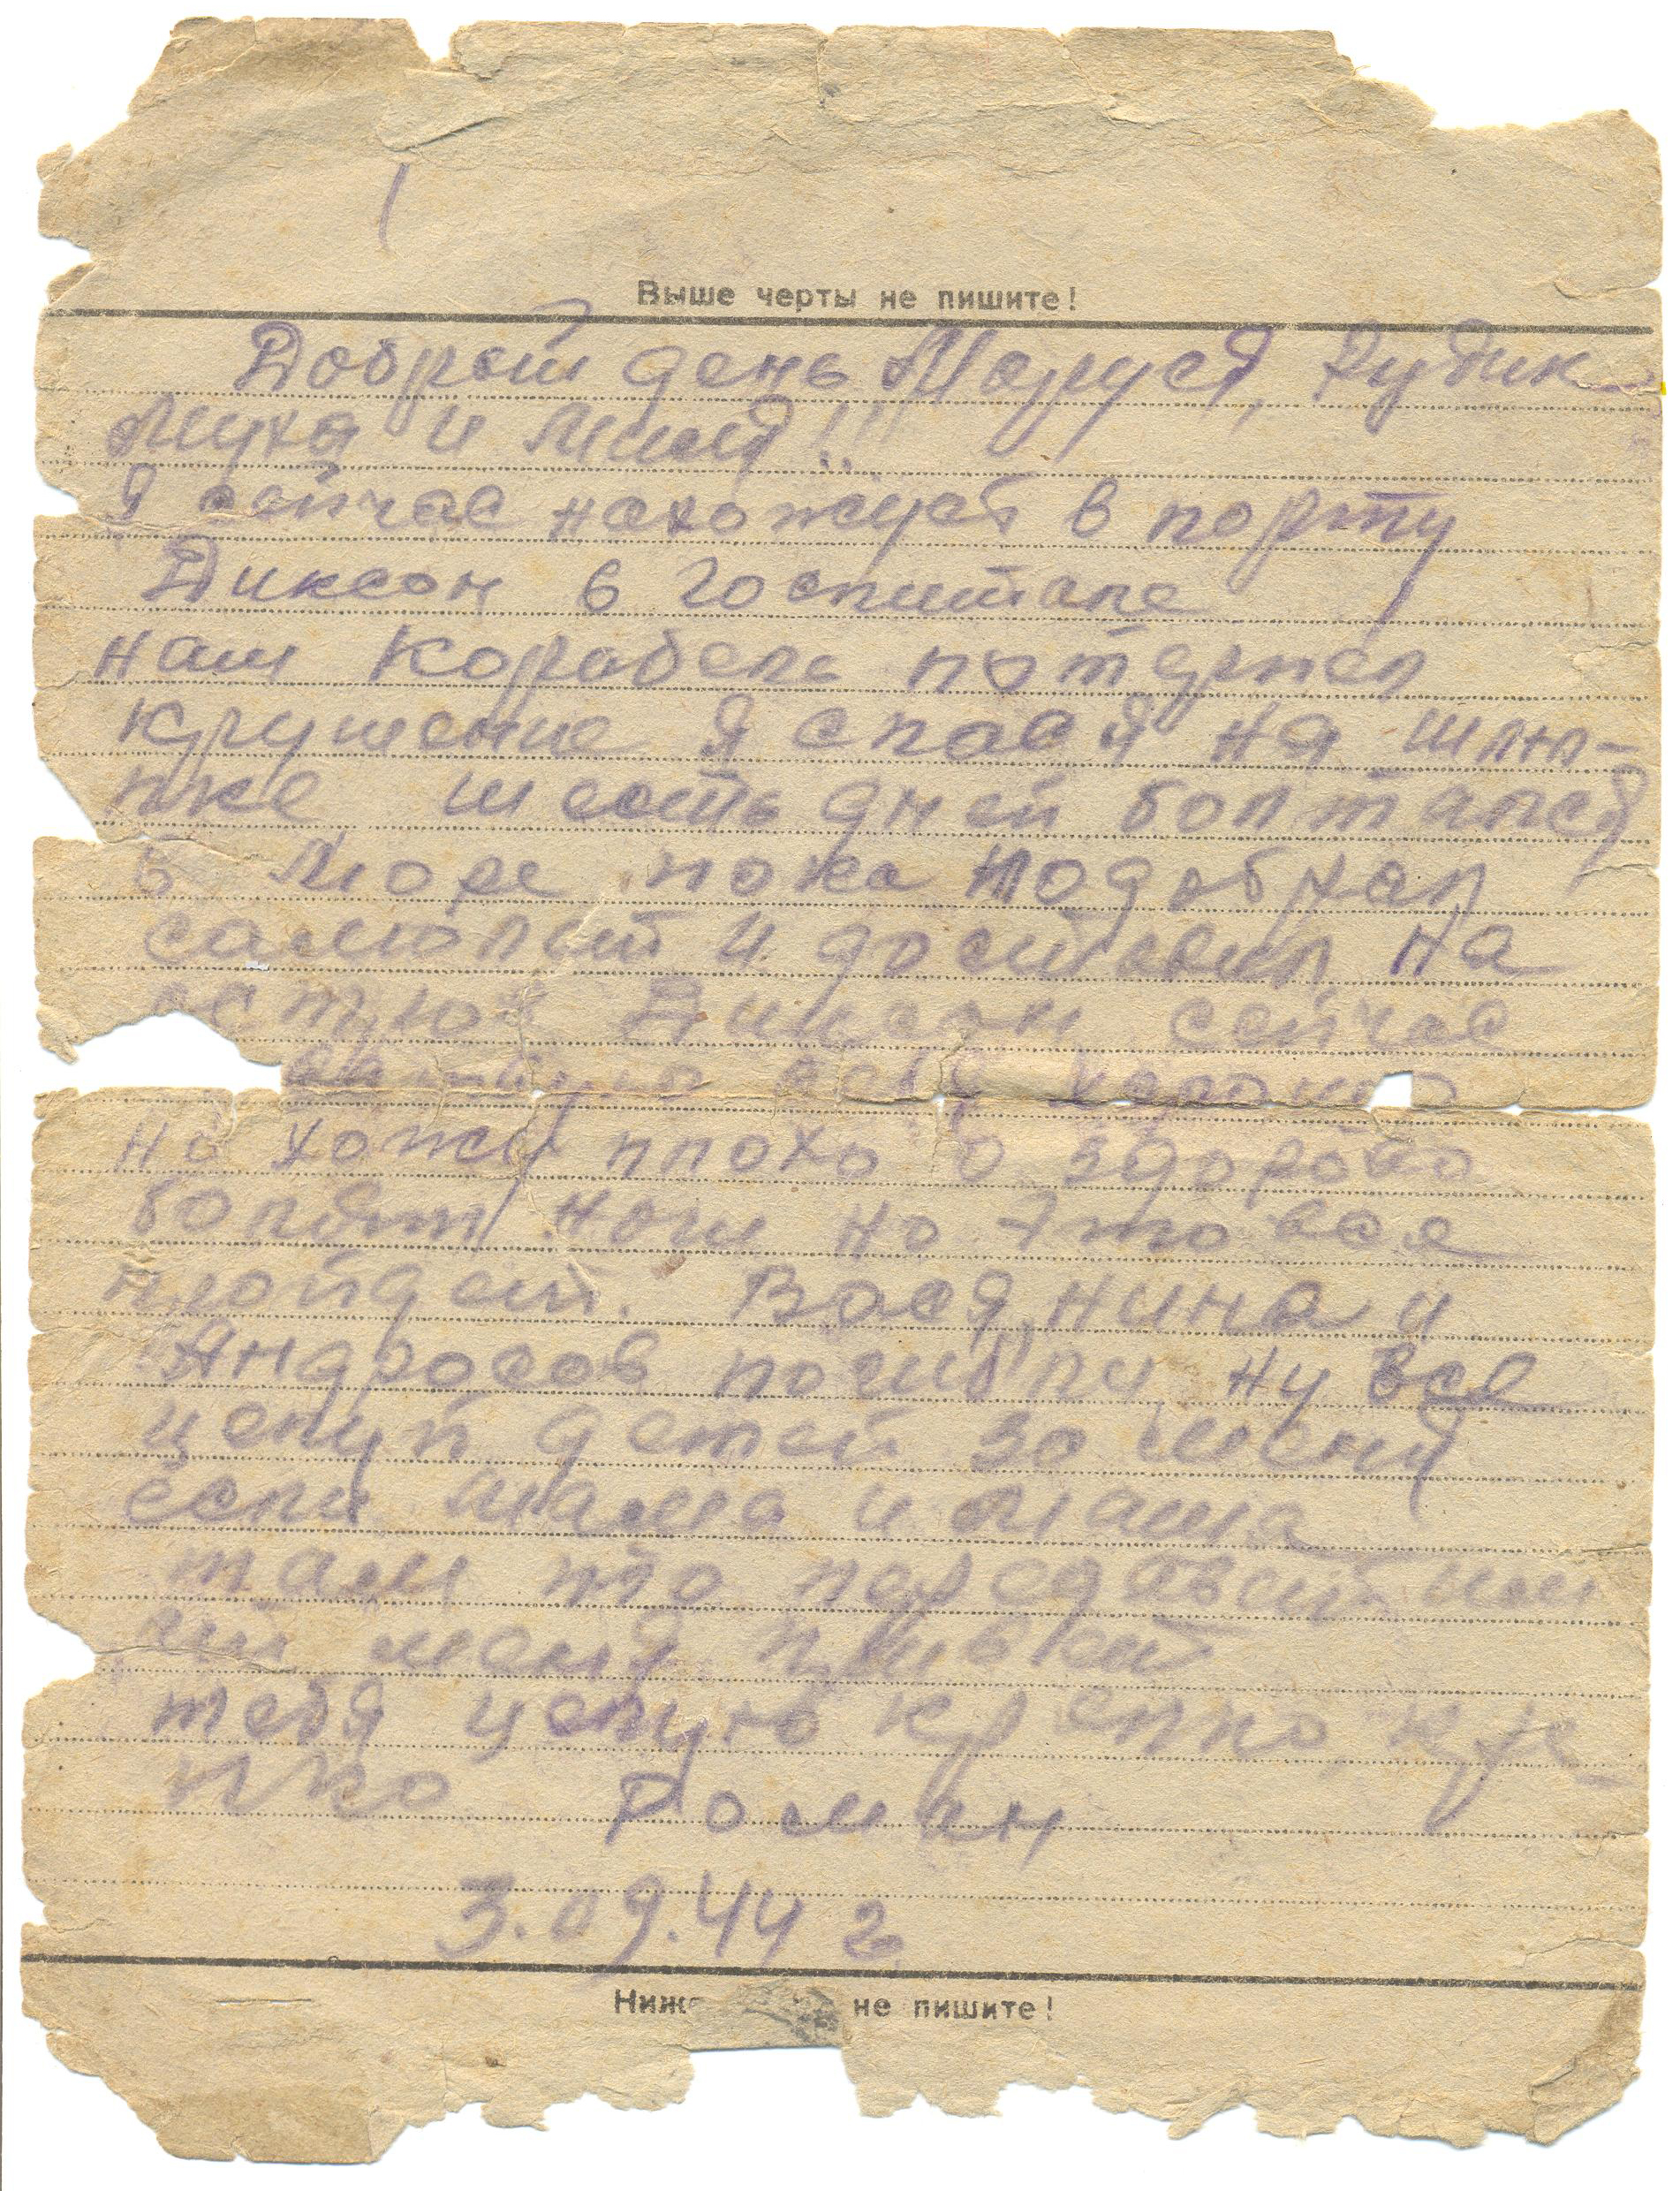 Выше черты не пишите!
Доброй день Маруся, Рудик
Муха и Миля!!
Я сейчас нахожусь в порту
Диксон в госпитале
наш корабель потерпел
крушение Я спася на шлю-
пке шесть дней болтался
в море пока подобрал
самолёт и доставил на
Диксон сейчас
себя хорошо
но хожу плохо здорово
болят ноги но это все
пройдет. Вася, Нина и
Андросов погибли ну все
целуй детей за меня
если мама и Маша
там то передавай им
от меня привет
тебя целую крепко, кре-
пко Роман
3.09.44 г.
Ниже не пишите!